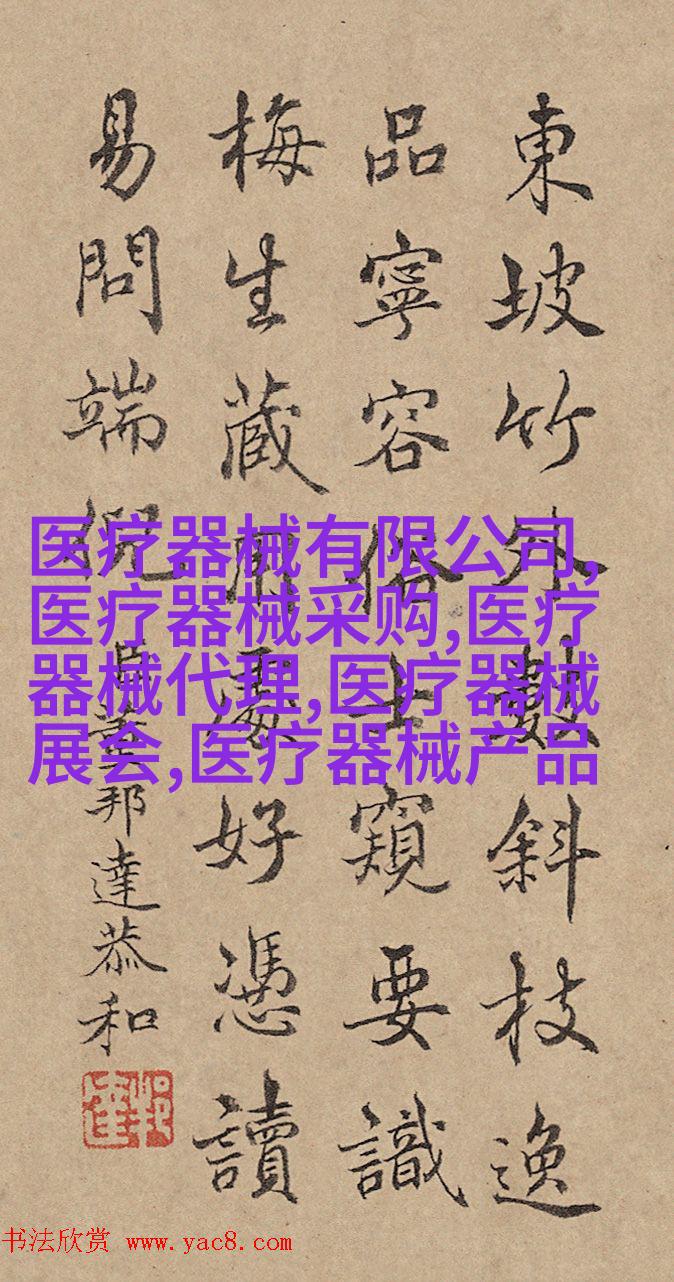 東坡竹外數斜枝逸
品寧容俗士窺要識
梅生藏用處好憑讀
易問端倪 臣董邦達恭和
医疗器械有限公司,
医疗器械采购,医疗
器械代理,医疗器械
展会,医疗器械产品
书法欣赏 www.yac8.com